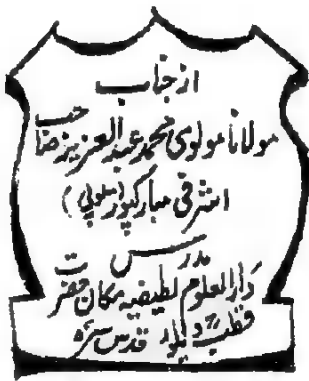 از جناب
مولانا مولوی محمد عبدالعزیز صاحب
اشرفی مبارکپور (یوپی)
مدرس
دارالعلوم لطیفیہ مکان حضرت
قطب ویلور قدس سرہ